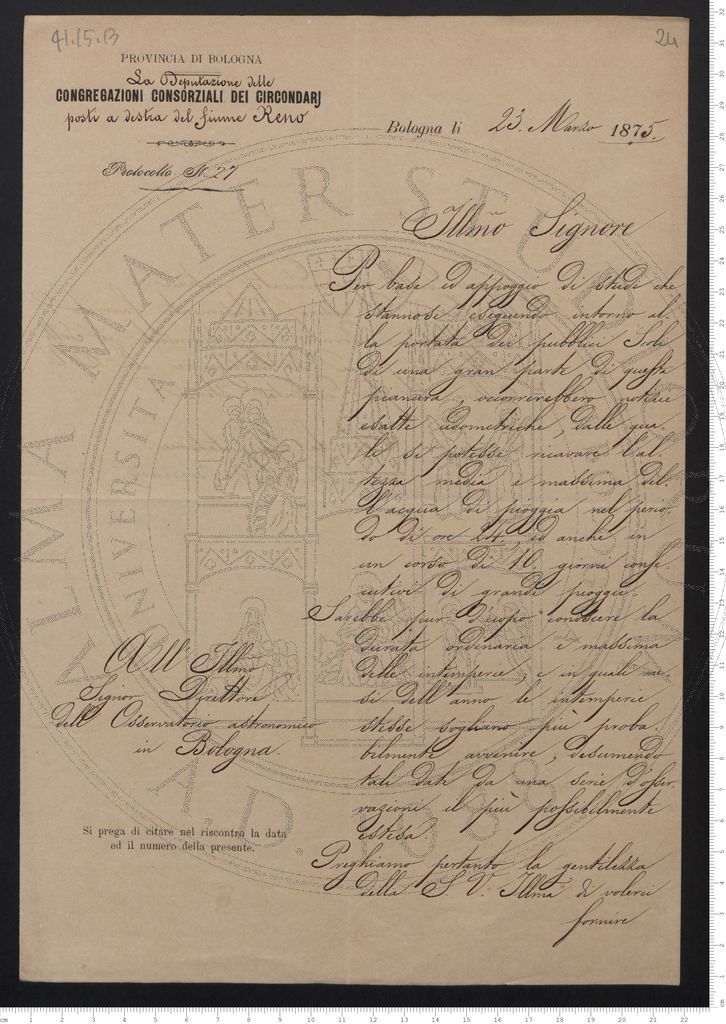 41.15.B
24
PROVINCIA DI BOLOGNA
La Deputazione delle
CONGREGAZIONI CONSORZIALI DEI CIRCONDARJ
posti a destra del fiume Reno
Bologna li 23. Marzo 1875.
Protocollo N. 27
Illmo Signore
Per base ed appoggio di studi che
stannosi eseguendo intorno al-
la portata dei pubblici Scoli
di una gran parte di questa
pianura, occorrerebbero notizie
esatte udometriche, dalle qua-
li si potesse ricavare l'al-
tezza media e massima del-
l'acqua di pioggia nel perio-
do di ore 24 ed anche in
un corso di 10. giorni conse-
cutivi di grande pioggia.
Sarebbe pur d'uopo conoscere la
durata ordinaria e massima
delle intemperie, e in quali me-
si dell'anno le intemperie
stesse sogliano più proba
bilmente avvenire, desumendo
tali dati da una serie d'osser-
vazioni il più possibilmente
estesa.
Preghiamo pertanto la gentilezza
della S. V. Illma di volerci
fornire
All' Illmo
Signor Direttore
dell' Osservatorio astronomico
in Bologna.
Si prega di citare nel riscontro la data
ed il numero della presente.
ALMA MATER STUDIORUM
UNIVERSITA
A.D. 1088